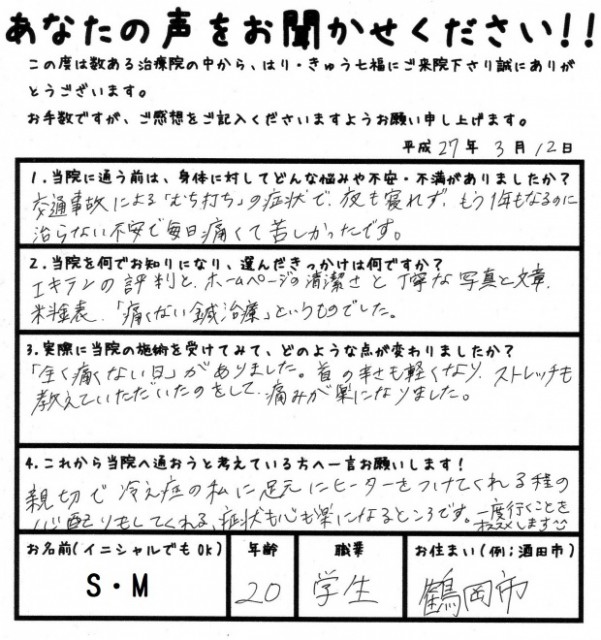 あなたの声をお聞かせください!!
この度は数ある治療院の中から、はり・きゅう七福にご来院下さり誠にありが
とうございます。
お手数ですが、ご感想をご記入くださいますようお願い申し上げます。
平成 27年 3月 12日
1.当院に通う前は、身体に対してどんな悩みや不安・不満がありましたか?
交通事故による「むち打ち」の症状で、夜も寝れず、もう1年もなるのに
治らない不安で毎日痛くて苦しかったです。
2.当院を何でお知りになり、選んだきっかけは何ですか?
エキテンの評判と、ホームページの清潔さと丁寧な写真と文章、
料金表、「痛くない鍼治療」というものでした。
3.実際に当院の施術を受けてみて、どのような点が変わりましたか?
「全く痛くない日」がありました。首の辛さも軽くなり、ストレッチも
教えていただいたのをして、痛みが楽になりました。
4.これから当院へ通おうと考えている方へ一言お願いします!
親切で冷え症の私に足元にヒーターをつけてくれる程の
心配りもしてくれる、症状も心も楽になるところです。一度行くことを
おススメします
お名前(イニシャルでもOK) 年齢 職業 お住まい(例;酒田市)
S・M 20 学生 鶴岡市